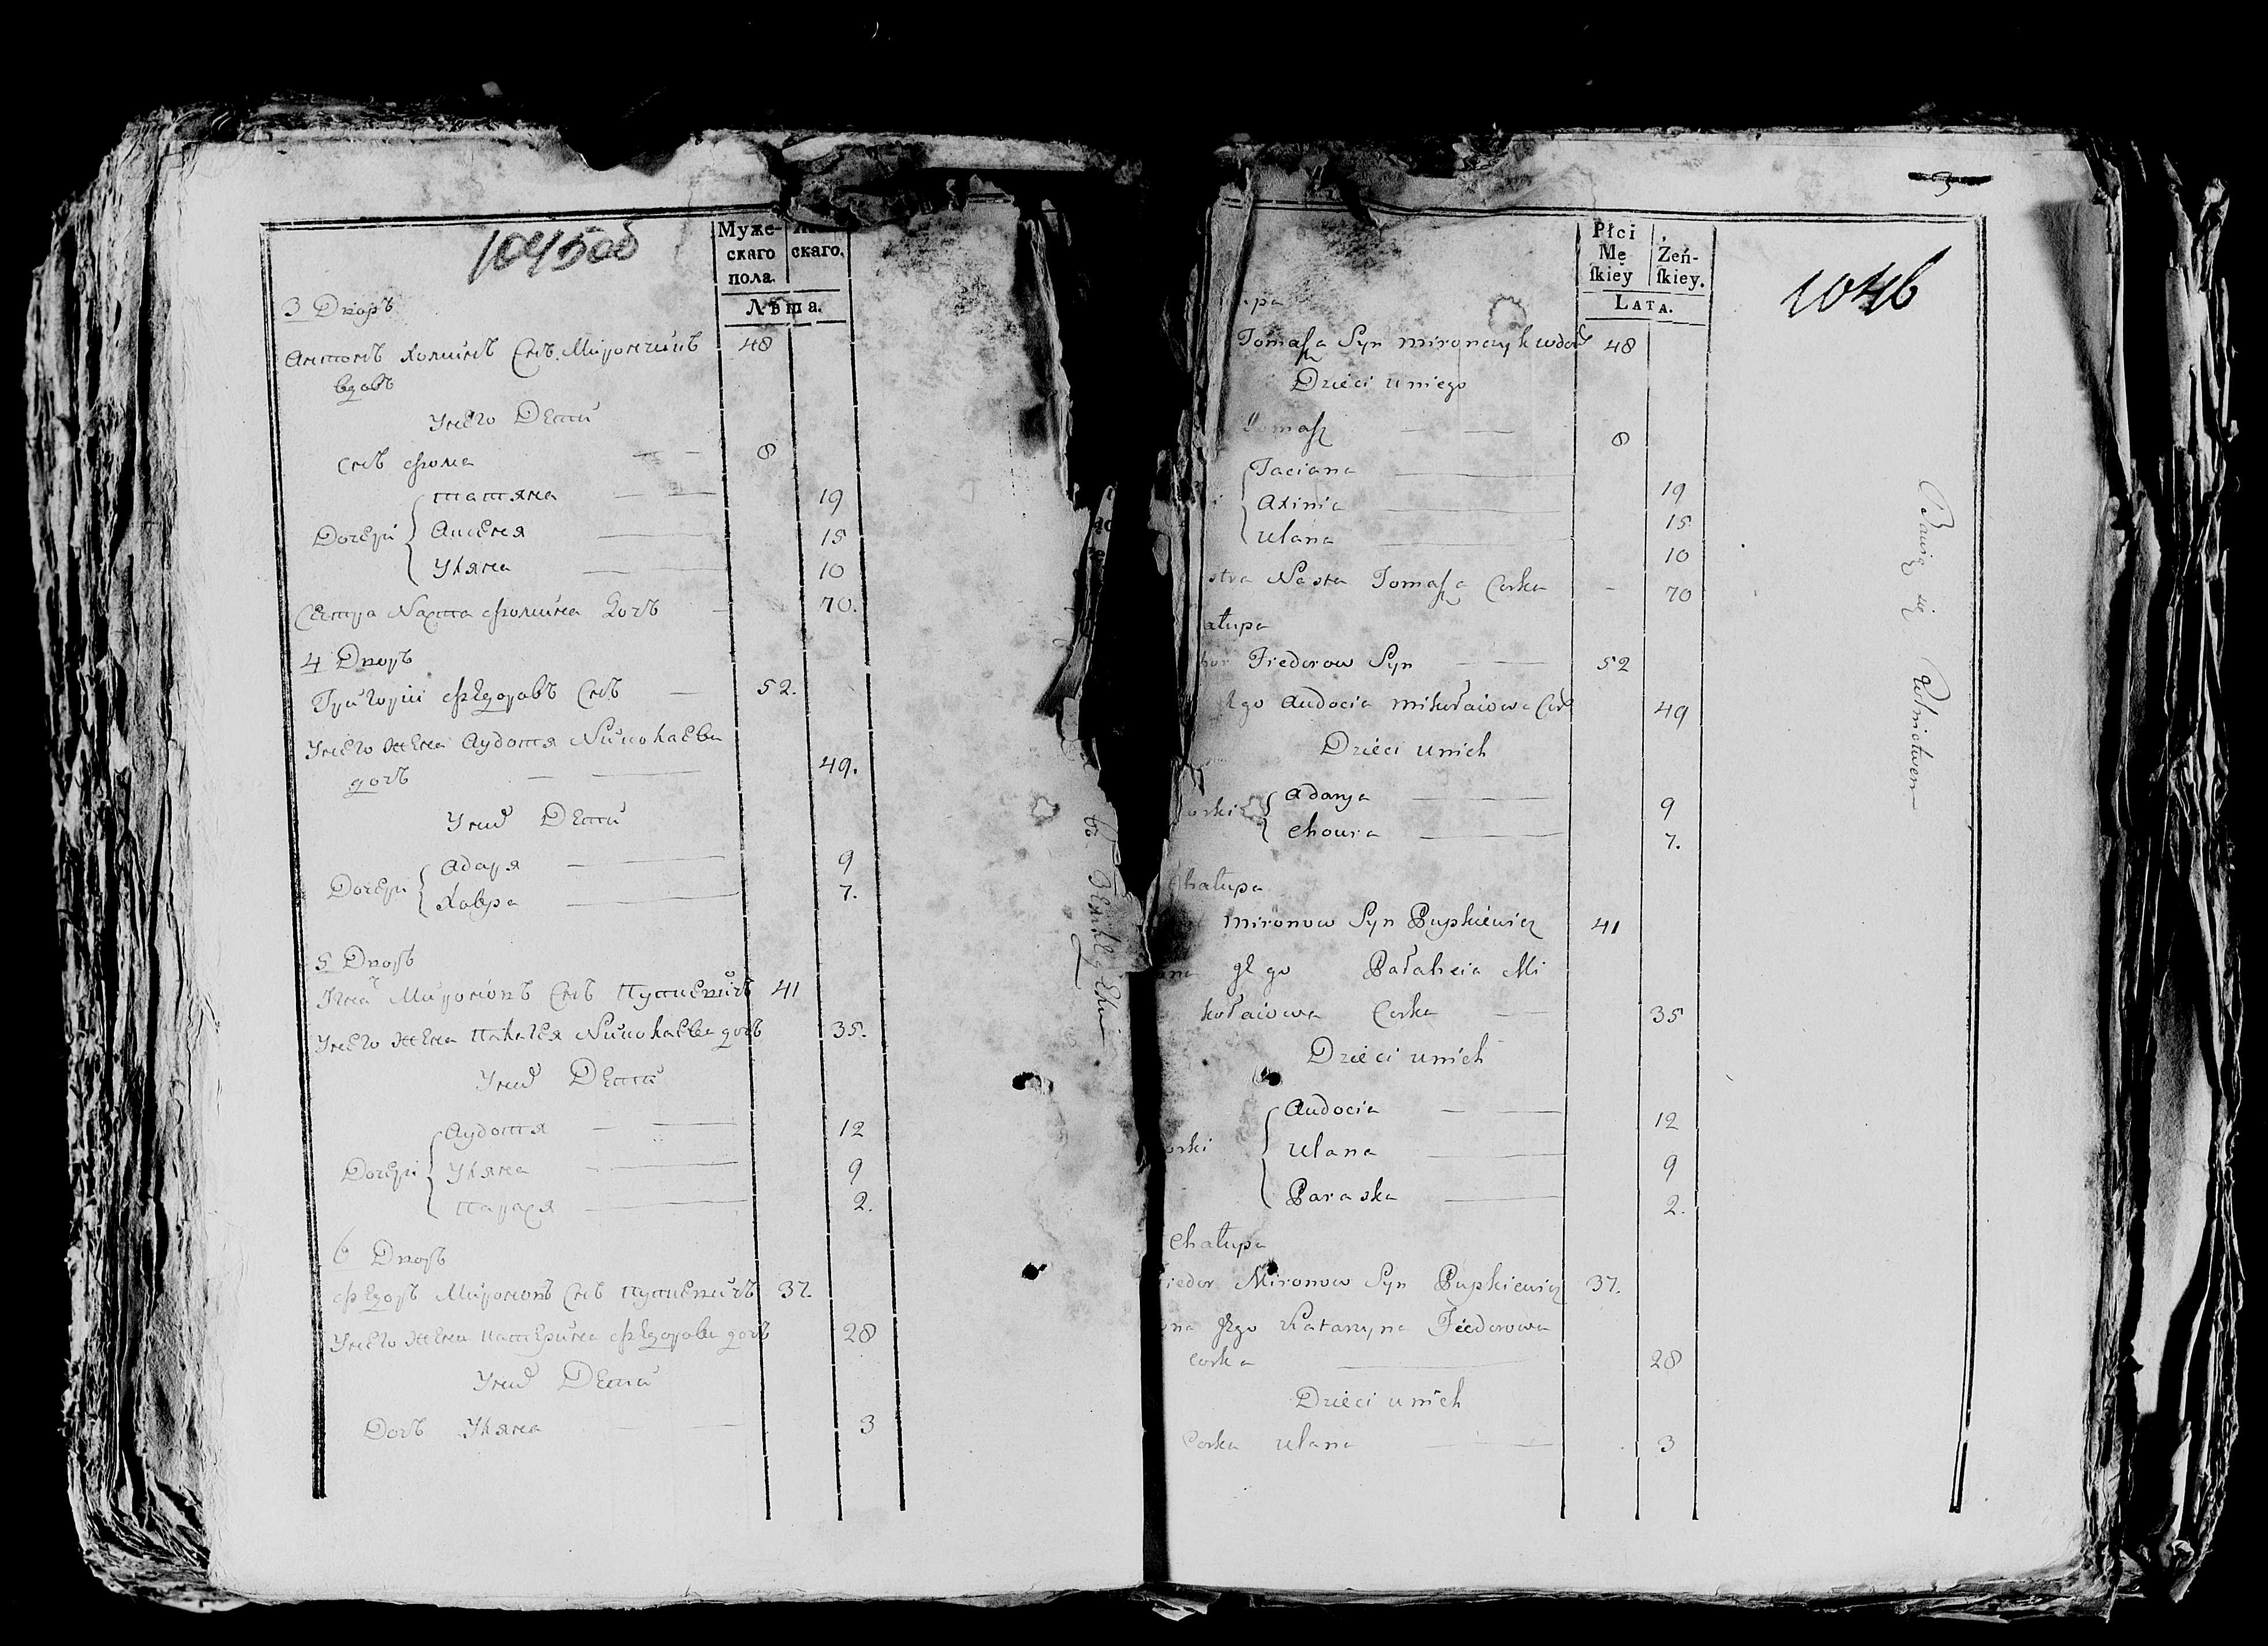 1045об
Муже-
скаго
пола.
скаго.
Лѣта.
3 Дворъ
Антонъ Хоминъ Снъ Мирончикъ 48
вдовъ
У него Дети
Снъ Фома 8
Дочери
татяна 19
Аксеня 15
Уляна 10
Сестра Наста Фомина Дочъ 70.
4 Дворъ
Григорiи Федоровъ Снъ 52.
У него жена Аудотя Николаева
дочъ 49.
У них Дети
Дочери
Адаря 9
Хавра 7.
5 Дворъ
Миронов Снъ Пупкевичъ 41
У него жена Палагея Николаева дочъ 35.
У них Дети
Дочери
Аудотя 12
Уляна 9
Парася 2.
6 Дворъ
Федоръ Миронов Снъ Пупкевичъ 37.
У него жена Катерина Федорова дочъ 28
У них Дети
Дочъ Уляна 3
3
1046
Płci
Mę
ſkiey
Żeń-
ſkiey.
LATA.
Tomaſza Syn Mironczyk wdow 48
Dzieci uniego
Tomaſz 8
Taciana 19
Axinia 15
Ulana 10
stra Nasta Tomaſza Corka - 70
ałupa
hor Fiedorow Syn 52
Jego Audocia Mikołaiowa Cor 49
Dzieci unich
orki
Adarya 9
Chowra 7.
Chałupa
Mironow Syn Pupkiewicz 41
ona Jego Pałaheia Mi
kołaiowa Corka 35
Dzieci unich
orki
Audocia 12
Ulana 9
Paraska 2.
Chałupa
Fiedor Mironow Syn Pupkiewicz 37.
ona Jego Katarzyna Fiedorowa
Corka 28
Dzieci unich
Corka Ulana 3
Bawią się Rolnictwem